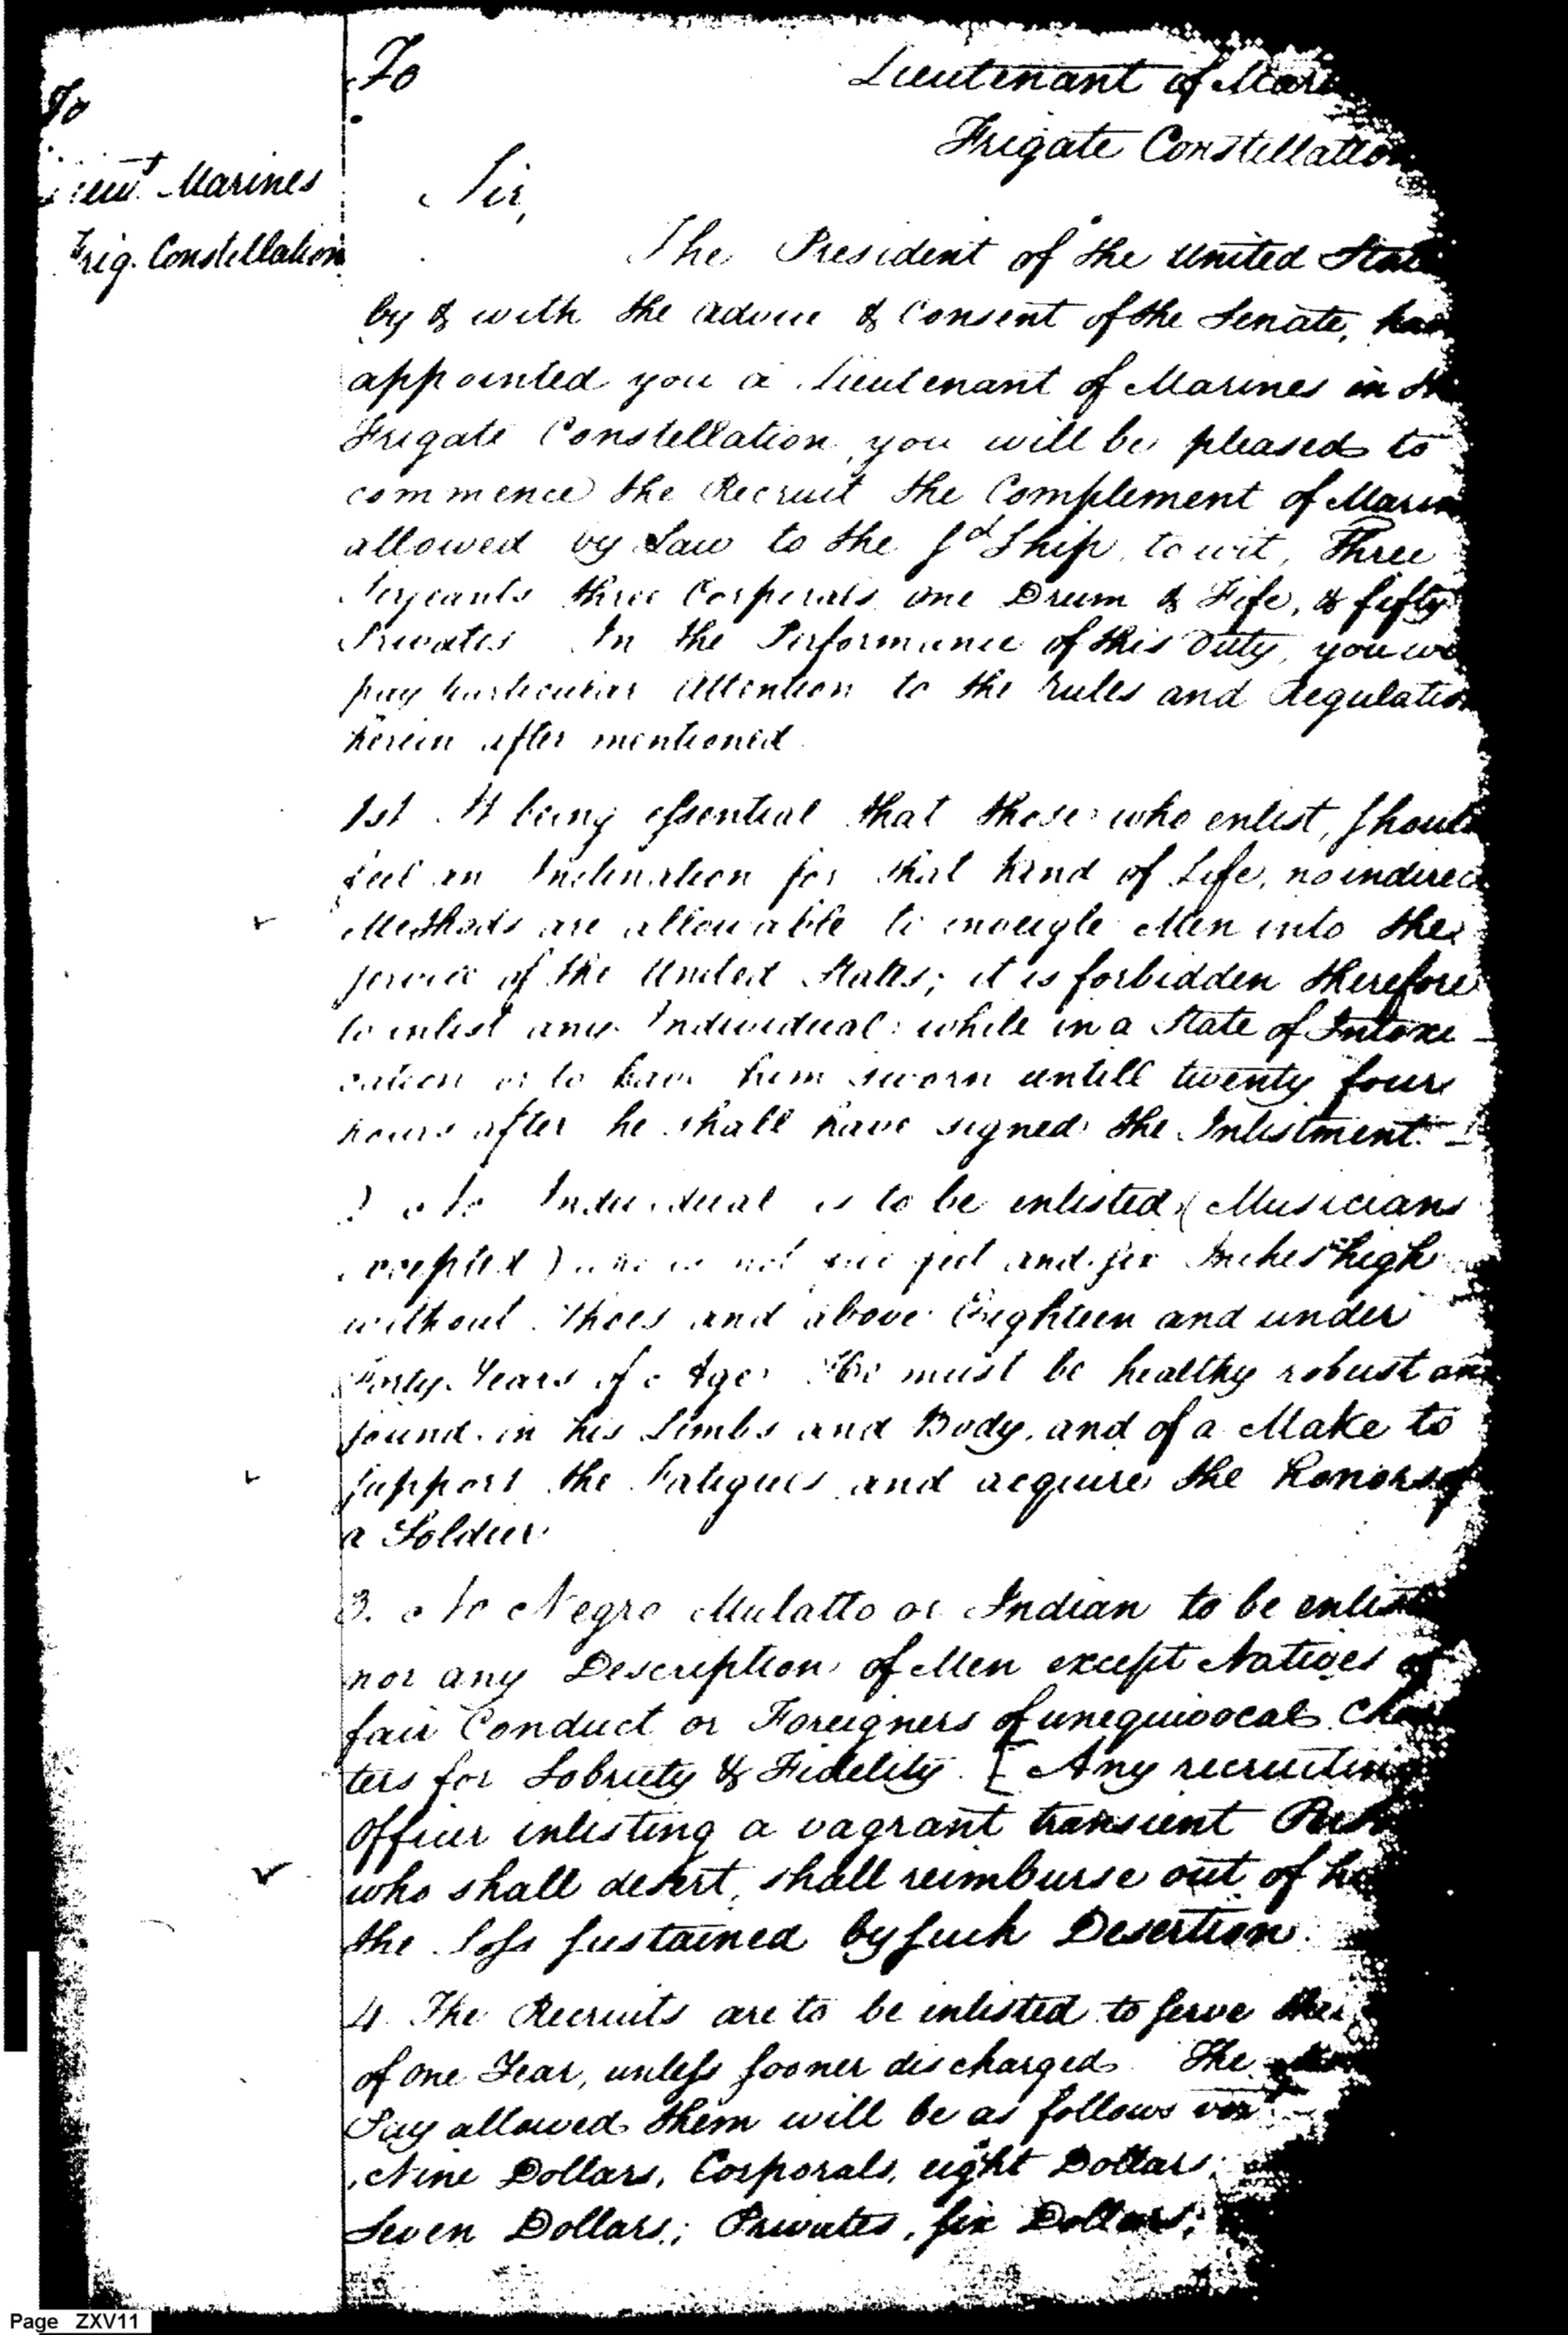 To
Marines
Frig. Constellation
To
Lieutenant of
Frigate Constellation
Sir,
The President of the United
by & with the advice & Consent of the Senate,
appointed you a Lieutenant of Marines in
Frigate Constellation, you will be pleased to
commence the Recruit the Complement of
allowed by Law to the Sd Ship, to wit, Three
Serjeants three Corporals one Drum & Fife, & fifty
Privates In the Performance of this Duty, you
pay particular Attention to the rules and
herein after mentioned
1st It being essential that those who enlist,
feel an Inclination for that kind of Life, no
Methods are allowable to inveigle Men into the
service of the United States; it is forbidden therefore
to inlist any Individual while in a State of Intoxi-
cation or to have him sworn untill twenty four
hours after he shall have signed the Inlistment
No Individual is to be enlisted (Musicians
excepted) who is not five feet and six Inches high
without Shoes and above Eighteen and under
Forty Years of Age He must be healthy robust
sound in his Limbs and Body, and of a Make to
support the Fatigues and acquire the honors of
a Soldier
3. No Negro Mulatto or Indian to be
nor any Description of Men except Natives of
fair Conduct or Foreigners of unequivocal
ters for Sobriety & Fidelity. [Any recruiting
Officer inlisting a vagrant transient
who shall desert, shall reimburse out of
the Loss sustained by such Desertion.
4. The Recruits are to be inlisted to serve
of one Year, unless sooner discharged The
Pay allowed them will be as follows
Nine Dollars, Corporals, eight Dollars,
Seven Dollars; Privates, six Dollars;
Page ZXV11